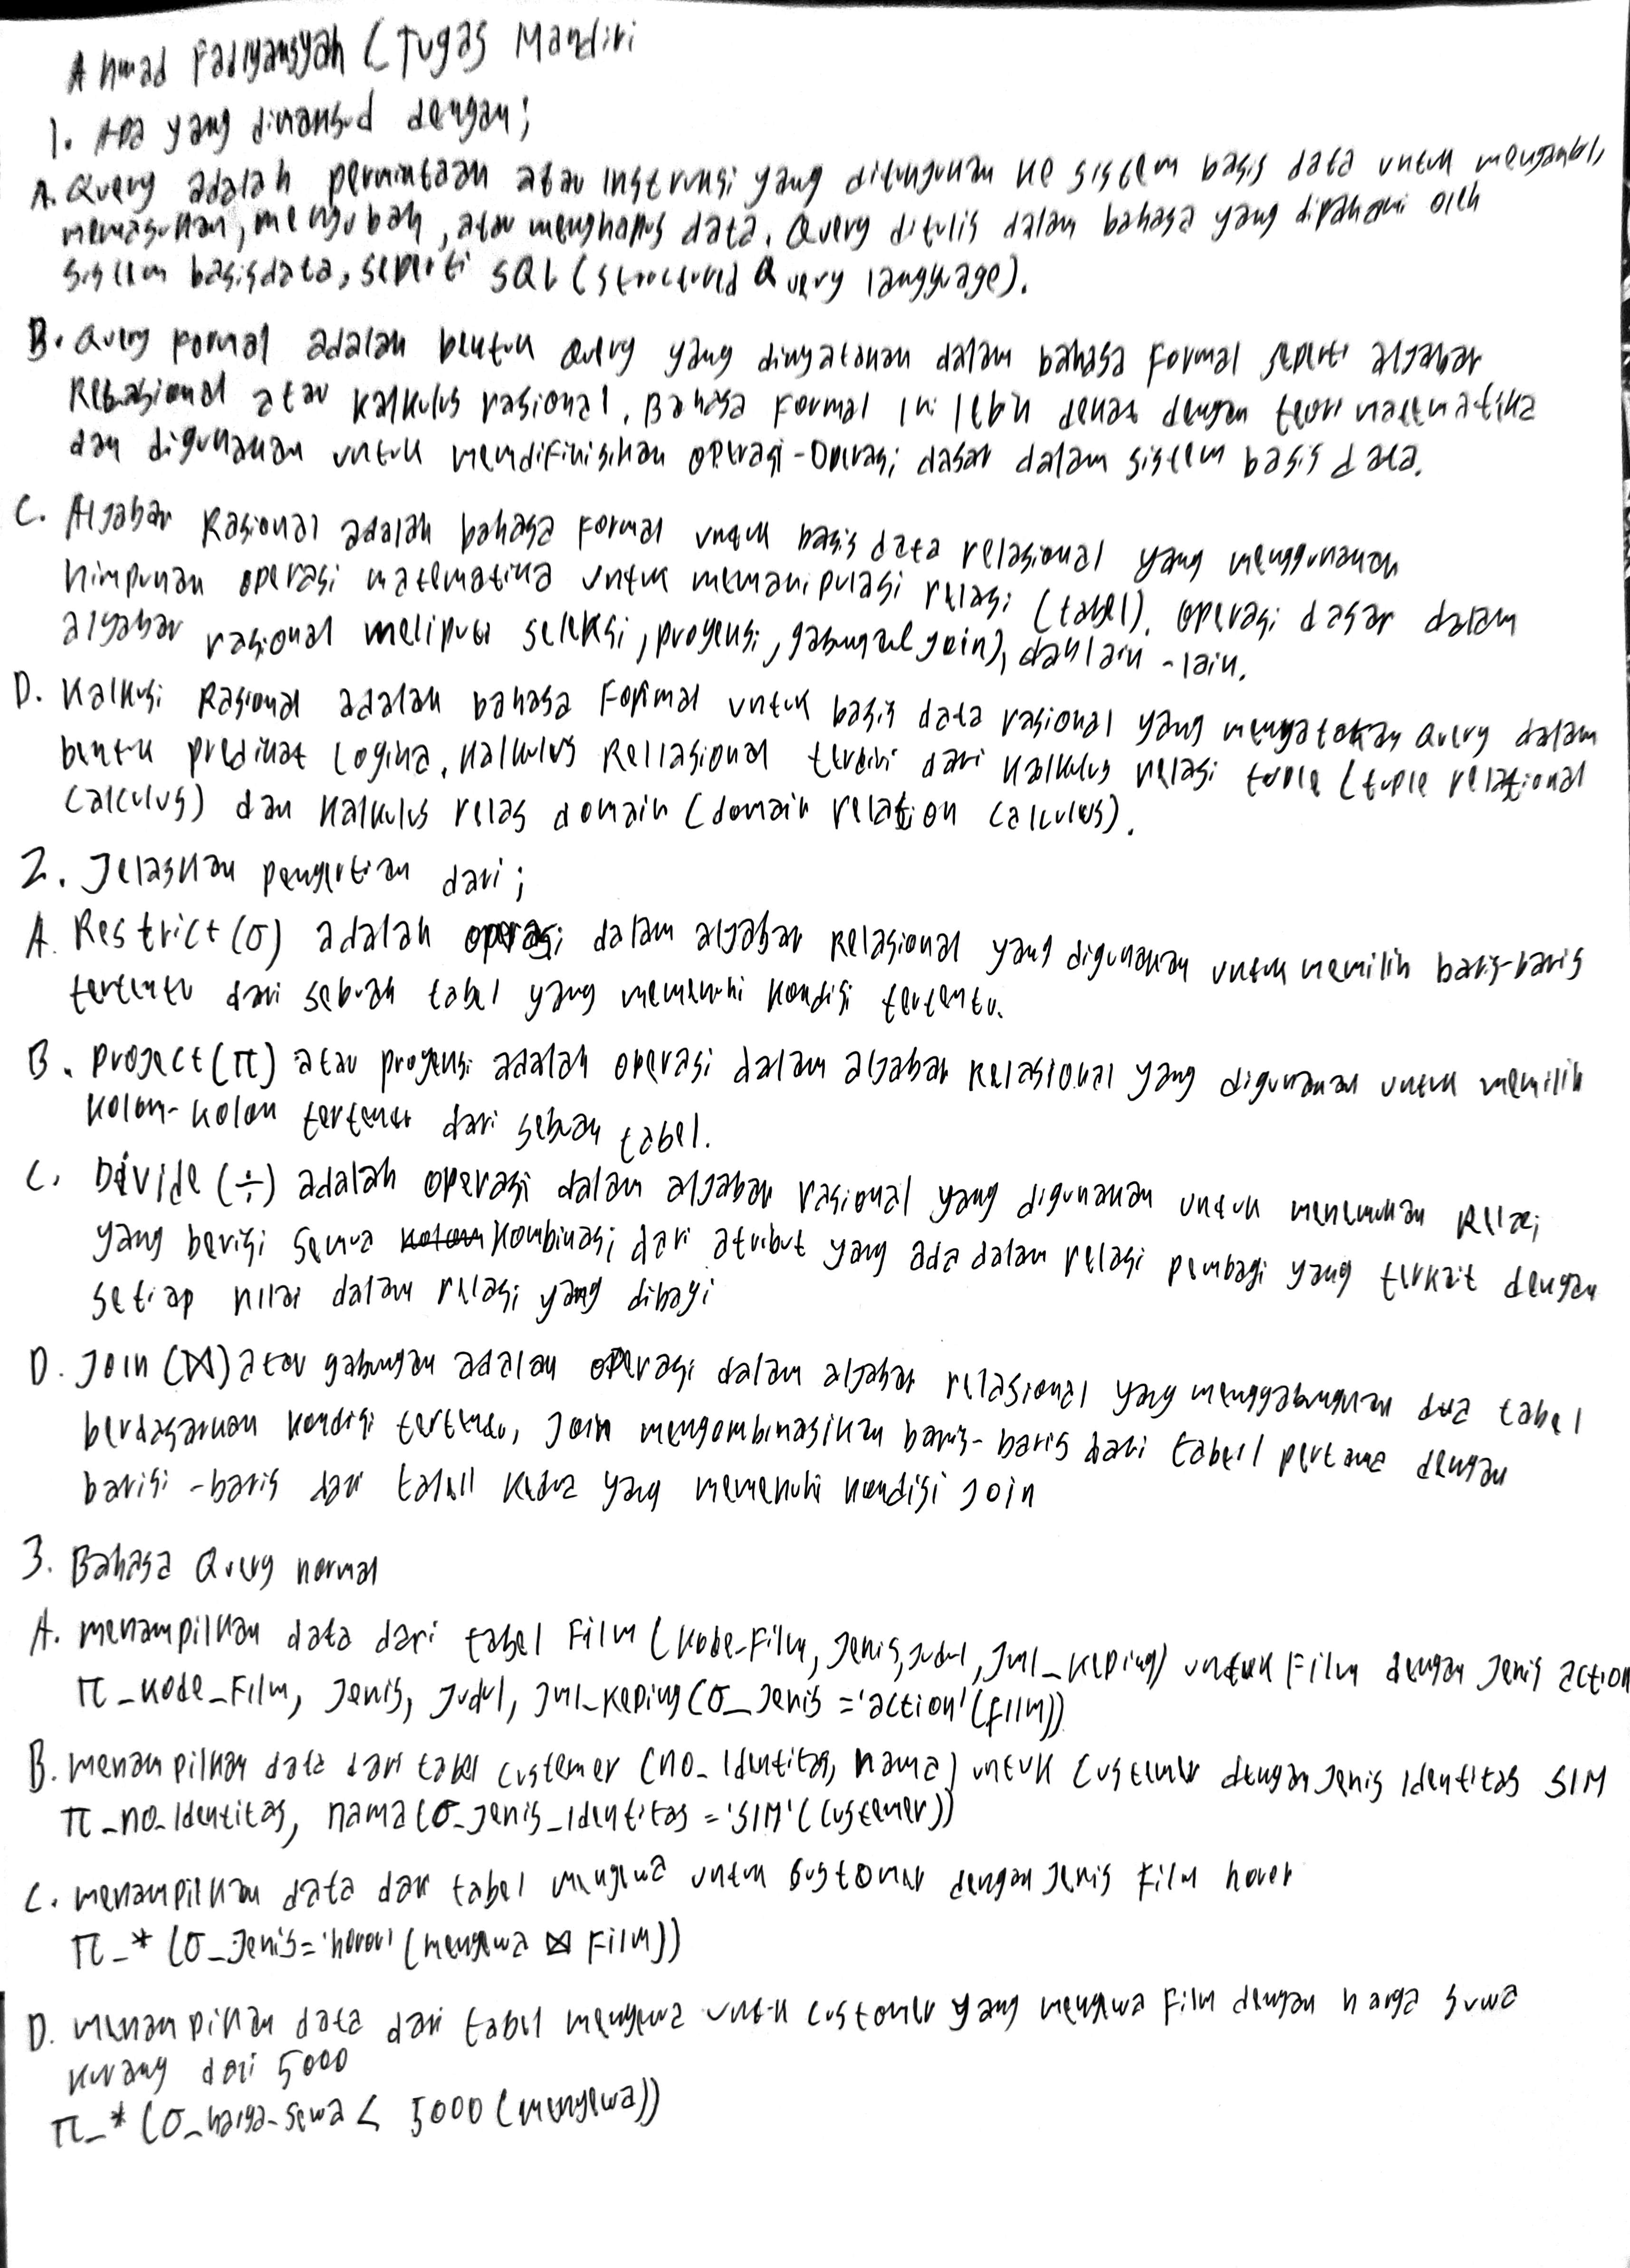 Ahmad Fadlyansyah (Tugas Mandiri
1. Apa yang dimaksud dengan;
A. Query adalah permintaan atau instruksi yang ditunjukan ke sistem basis data untuk mengambil,
memasukkan, mengubah, atau menghapus data. Query ditulis dalam bahasa yang dipahami oleh
sistem basisdata, seperti SQL (structured Query langguage).
B. Query formal adalah bentuk query yang dinyatakan dalam bahasa formal seperti aljabar
Relasional atau kalkulus rasional. Bahasa formal ini lebih dekat dengan teori matematika
dan digunakan untuk mendifinisikan operasi-operasi dasar dalam sistem basis data.
C. Aljabar Rasional adalah bahasa formal untuk basis data relasional yang menggunakan
himpunan operasi matematika untuk memanipulasi relasi (tabel). operasi dasar dalam
aljabar rasional meliputi seleksi, proyeksi, (join), dan lain - lain.
D. Kalkusi Rasional adalah bahasa Formal untuk basis data rasional yang mengatakan Query dalam
bentuk predikat logika. kalkulus Rellasional terdiri dari kalkulus relasi tuple (tuple relational
calculus) dan kalkulus relas domain (domain relation calculus).
2. Jelaskan pengertian dari;
A. Restrict (σ) adalah operasi dalam aljabar relasional yang digunakan untuk memilih baris-baris
tertentu dari sebuah tabel yang memenuhi kondisi tertentu.
B. Project (π) atau proyeksi adalah operasi dalam aljabar relasional yang digunakan untuk memilih
kolom-kolom tertentu dari sebuah tabel.
C. Divide (÷) adalah operasi dalam aljabar rasional yang digunakan untuk menemukan Relasi
yang berisi semua kombinasi dari atribut yang ada dalam relasi pembagi yang terkait dengan
setiap nilai dalam relasi yang dibagi
D. Join (⋈) atau gabungan adalah operasi dalam aljabar relasional yang menggabungkan dua tabel
berdasarkan kondisi tertentu, Join mengombinasikan baris-baris dari tabel pertama dengan
barisi -baris dari tabel kedua yang memenuhi kondisi join
3. Bahasa Query normal
A. menampilkan data dari tabel Film (kode_Film, Jenis, Judul, Jml_Keping) untuk Film dengan Jenis action
π_kode_Film, Jenis, Judul, Jml_Keping (σ_Jenis = 'action' (film))
B. menampilkan data dari tabel customer (no_Identitas, nama) untuk customer dengan Jenis Identitas SIM
π_no_Identitas, nama (σ_Jenis_Identitas = 'SIM' (customer))
C. menampilkan data dari tabel menyewa untuk customer dengan Jenis Film horer
π_* (σ_Jenis = 'horor' (menyewa ⋈ Film))
D. menampilkan data dari tabel menyewa untuk customer yang menyewa Film dengan harga sewa
kurang dari 5000
π_* (σ_harga_sewa < 5000 (menyewa))